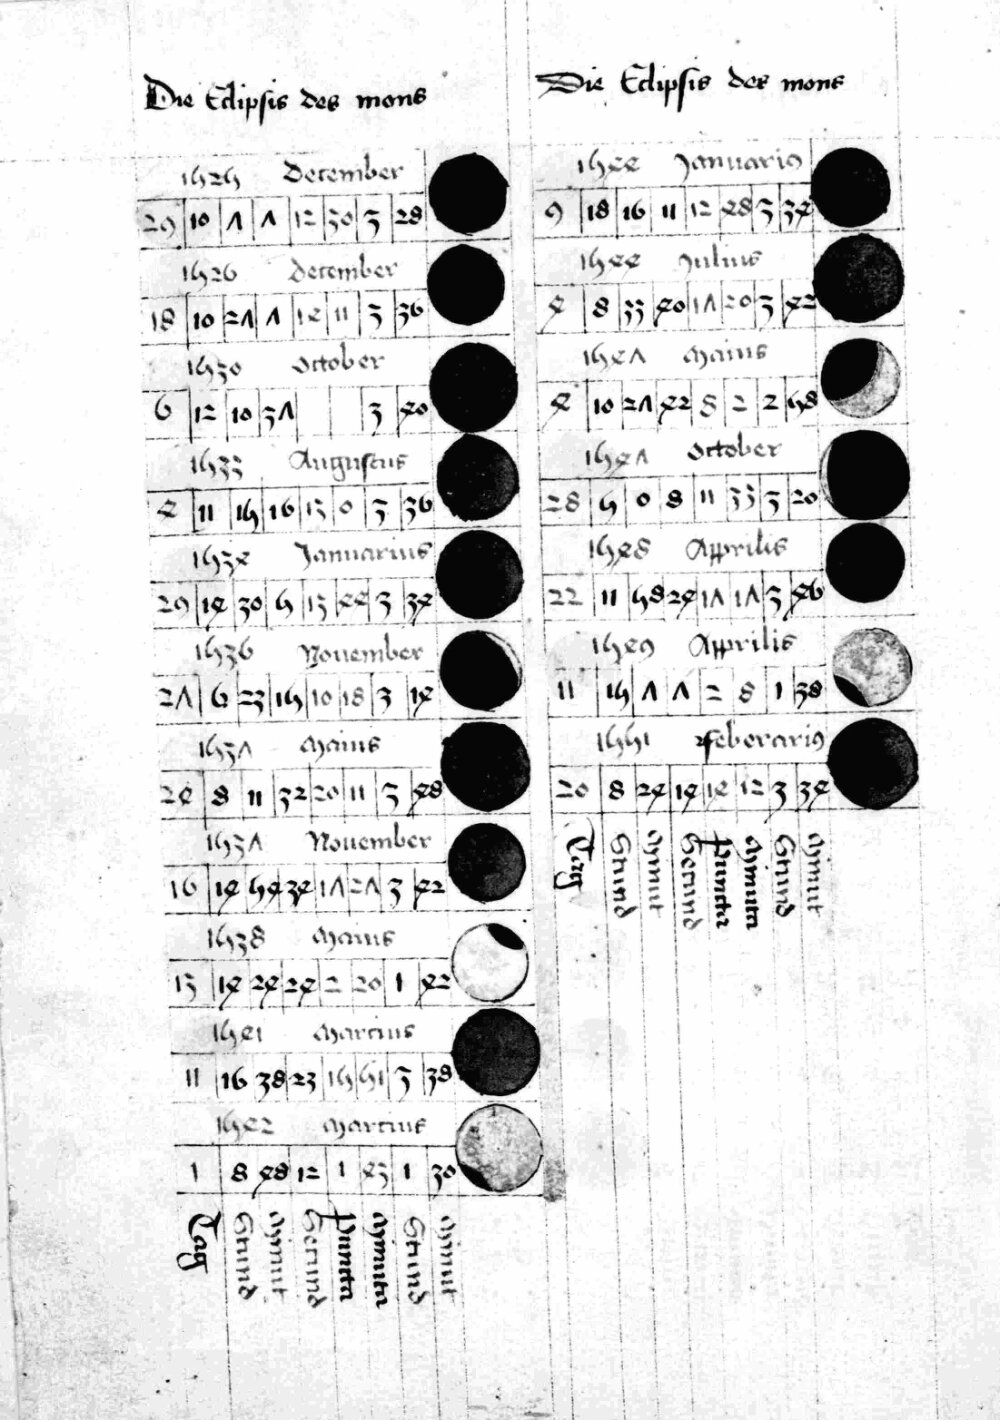 Die Eclipsis des mons
1525 December
29 10 7 7 12 30 3 28
1526 December
18 10 27 7 14 11 3 36
1530 October
6 12 10 37 3 40
1533 Augustus
4 11 15 16 13 0 3 36
1534 Januarius
29 14 30 5 13 44 3 34
1536 November
27 6 23 15 10 18 3 14
1537 Maius
24 8 11 32 20 11 3 48
1537 November
16 14 54 34 17 27 3 42
1538 Maius
13 14 24 24 2 20 1 42
1541 Martius
11 16 38 23 15 51 3 38
1542 Martius
1 8 48 12 1 43 1 30
Tag Stund Minut Secund Puncta Minuta Stund Minut
Die Eclipsis des mons
1544 Januariꝰ
9 18 16 11 12 48 3 34
1544 Julius
4 8 33 40 17 20 3 42
1547 Maius
4 10 27 42 8 2 2 58
1547 October
28 5 0 8 11 33 3 20
1548 Apprilis
22 11 58 24 17 17 3 46
1549 Apprilis
11 15 7 7 2 8 1 38
1551 Feberariꝰ
20 8 24 14 14 12 3 34
Tag Stund Minut Secund Puncta Minuta Stund Minut